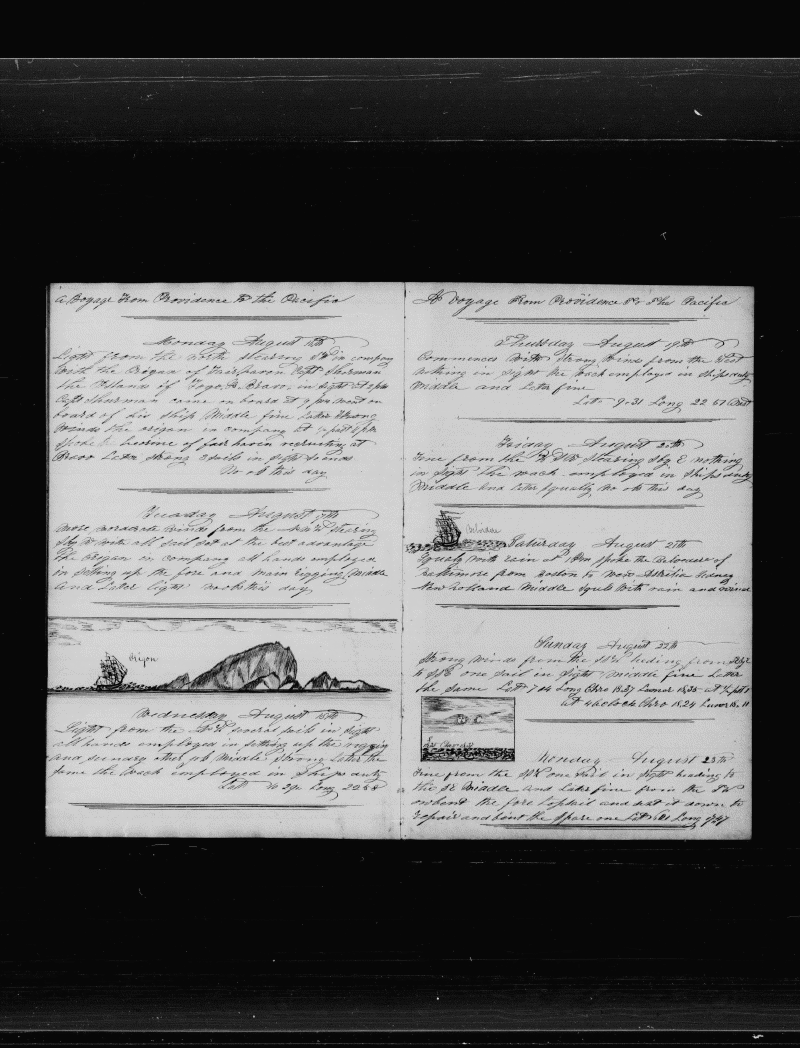 A Voyage From Providence To the Pacific
Monday August 16th
Light from the North stearing in company
With the Origon of Fairhaven Capt Sherman
the Islands of Fogo & Bravo in sight at
Capt Sherman came on board at 9 pm went on
board of his ship Middle fine Later Strong
Winds the origon in company at
Spoke of fair haven recruiting at
Bravo Later strong 2 sails in sight
No ob this day
Tuesday August 17th
more moderate winds from the stearing
S by W with all sail set at the best advantage
the Origon in company all hands employed
in setting up the fore and main rigging Middle
and Later light no ob this day
Origon
Wednesday August 18th
Light from the sails in sight
all hands employed in setting up the rigging
and sundry other job Middle Strong Later the
same the Watch employed in Ships duty
Latt Long
A Voyage From Providence To The Pacific
Thursday August 19th
Commences With Strong Winds from the West
nothing in sight the Watch employed in ships duty
Middle and Later fine
Latt 9.31 Long 22.57 West
Friday August 20th
Fine from the stearing S by E nothing
in sight the watch employed in Ships duty
Middle and Later Squally No ob this day
Saturday August 21th
Squaly With rain at spoke the of
Baltimore from Boston to Sidney
New Holland Middle Squls With rain and wind
Sunday August 22th
Strong winds from the heding from
to one sail in sight middle fine Later
the same Latt Long Chro 18.27 Lunar 18.25 at
at 4 oclock Chro 18.24 Lunar
Monday August 23th
Fine from the one Sail in sight heading to
the SE Middle and Later fine from the
onbent the fore topsail and sent it down to
repair and bent the Spare one Latt Long